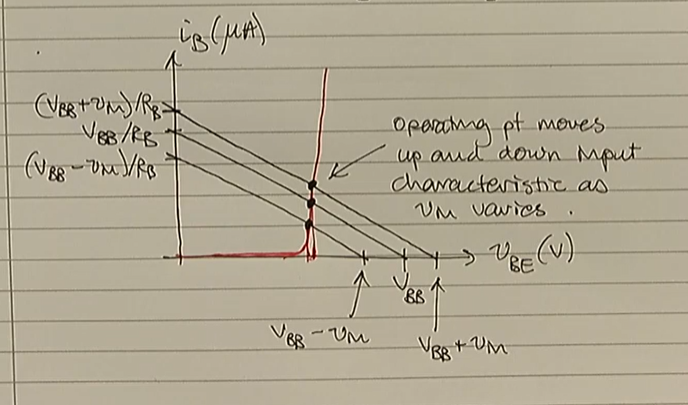 iB (μA)
(VBB+vM)/RB
VBB/RB
(VBB-vM)/RB
operating pt moves
up and down input
characteristic as
vM varies.
vBE (V)
VBB
VBB-vM
VBB+vM